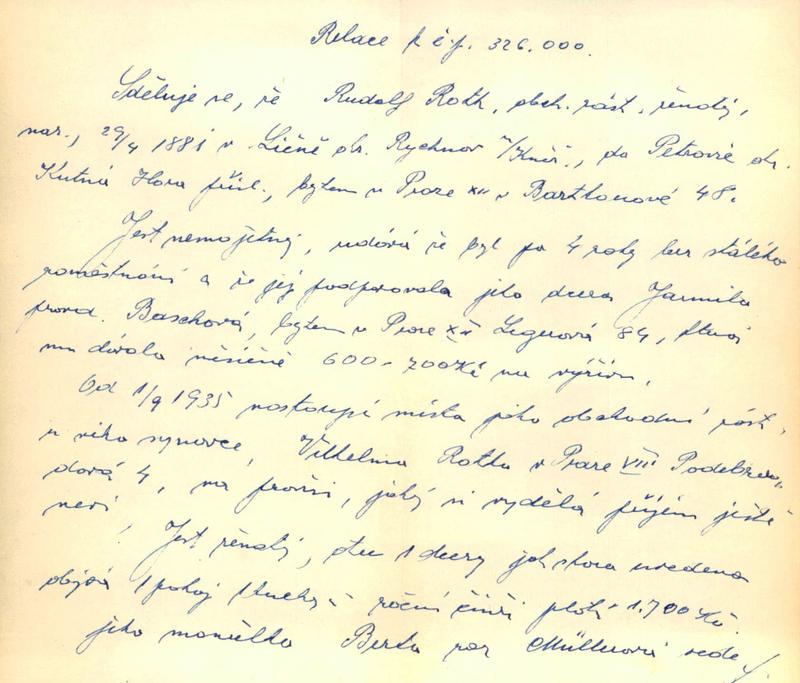 Relace k č.j. 326.000.
Sděluje se, že Rudolf Roth, obch. zást. ženatý,
nar. 29/4 1881 v Líčně okr. Rychnov n/Kněž., do Petrovic okr.
Kutná Hora přísl., bytem v Praze XII v Bartkonové 48.
Jest nemajetný, udává že byl po 4 roky bez stálého
zaměstnání a že jej podporovala jeho dcera Jarmila
provd. Baschová, bytem v Praze XII Legerová 84, která
mu dávala měsíčně 600-700Kč na výživu.
Od 1/9 1935 nastoupí místa jako obchodní zást.
u svého synovce, Vilhelma Rotha v Praze VIII Poděbra-
dová 4, na provisi, jaký si vydělá příjem ještě
neví.
Jest ženatý, otec 1 dcery jak shora uvedeno
obývá 1 pokoj 1 kuchyň roční činži platí 1.700 Kč.
jeho manželka Berta roz. Müllerová vede